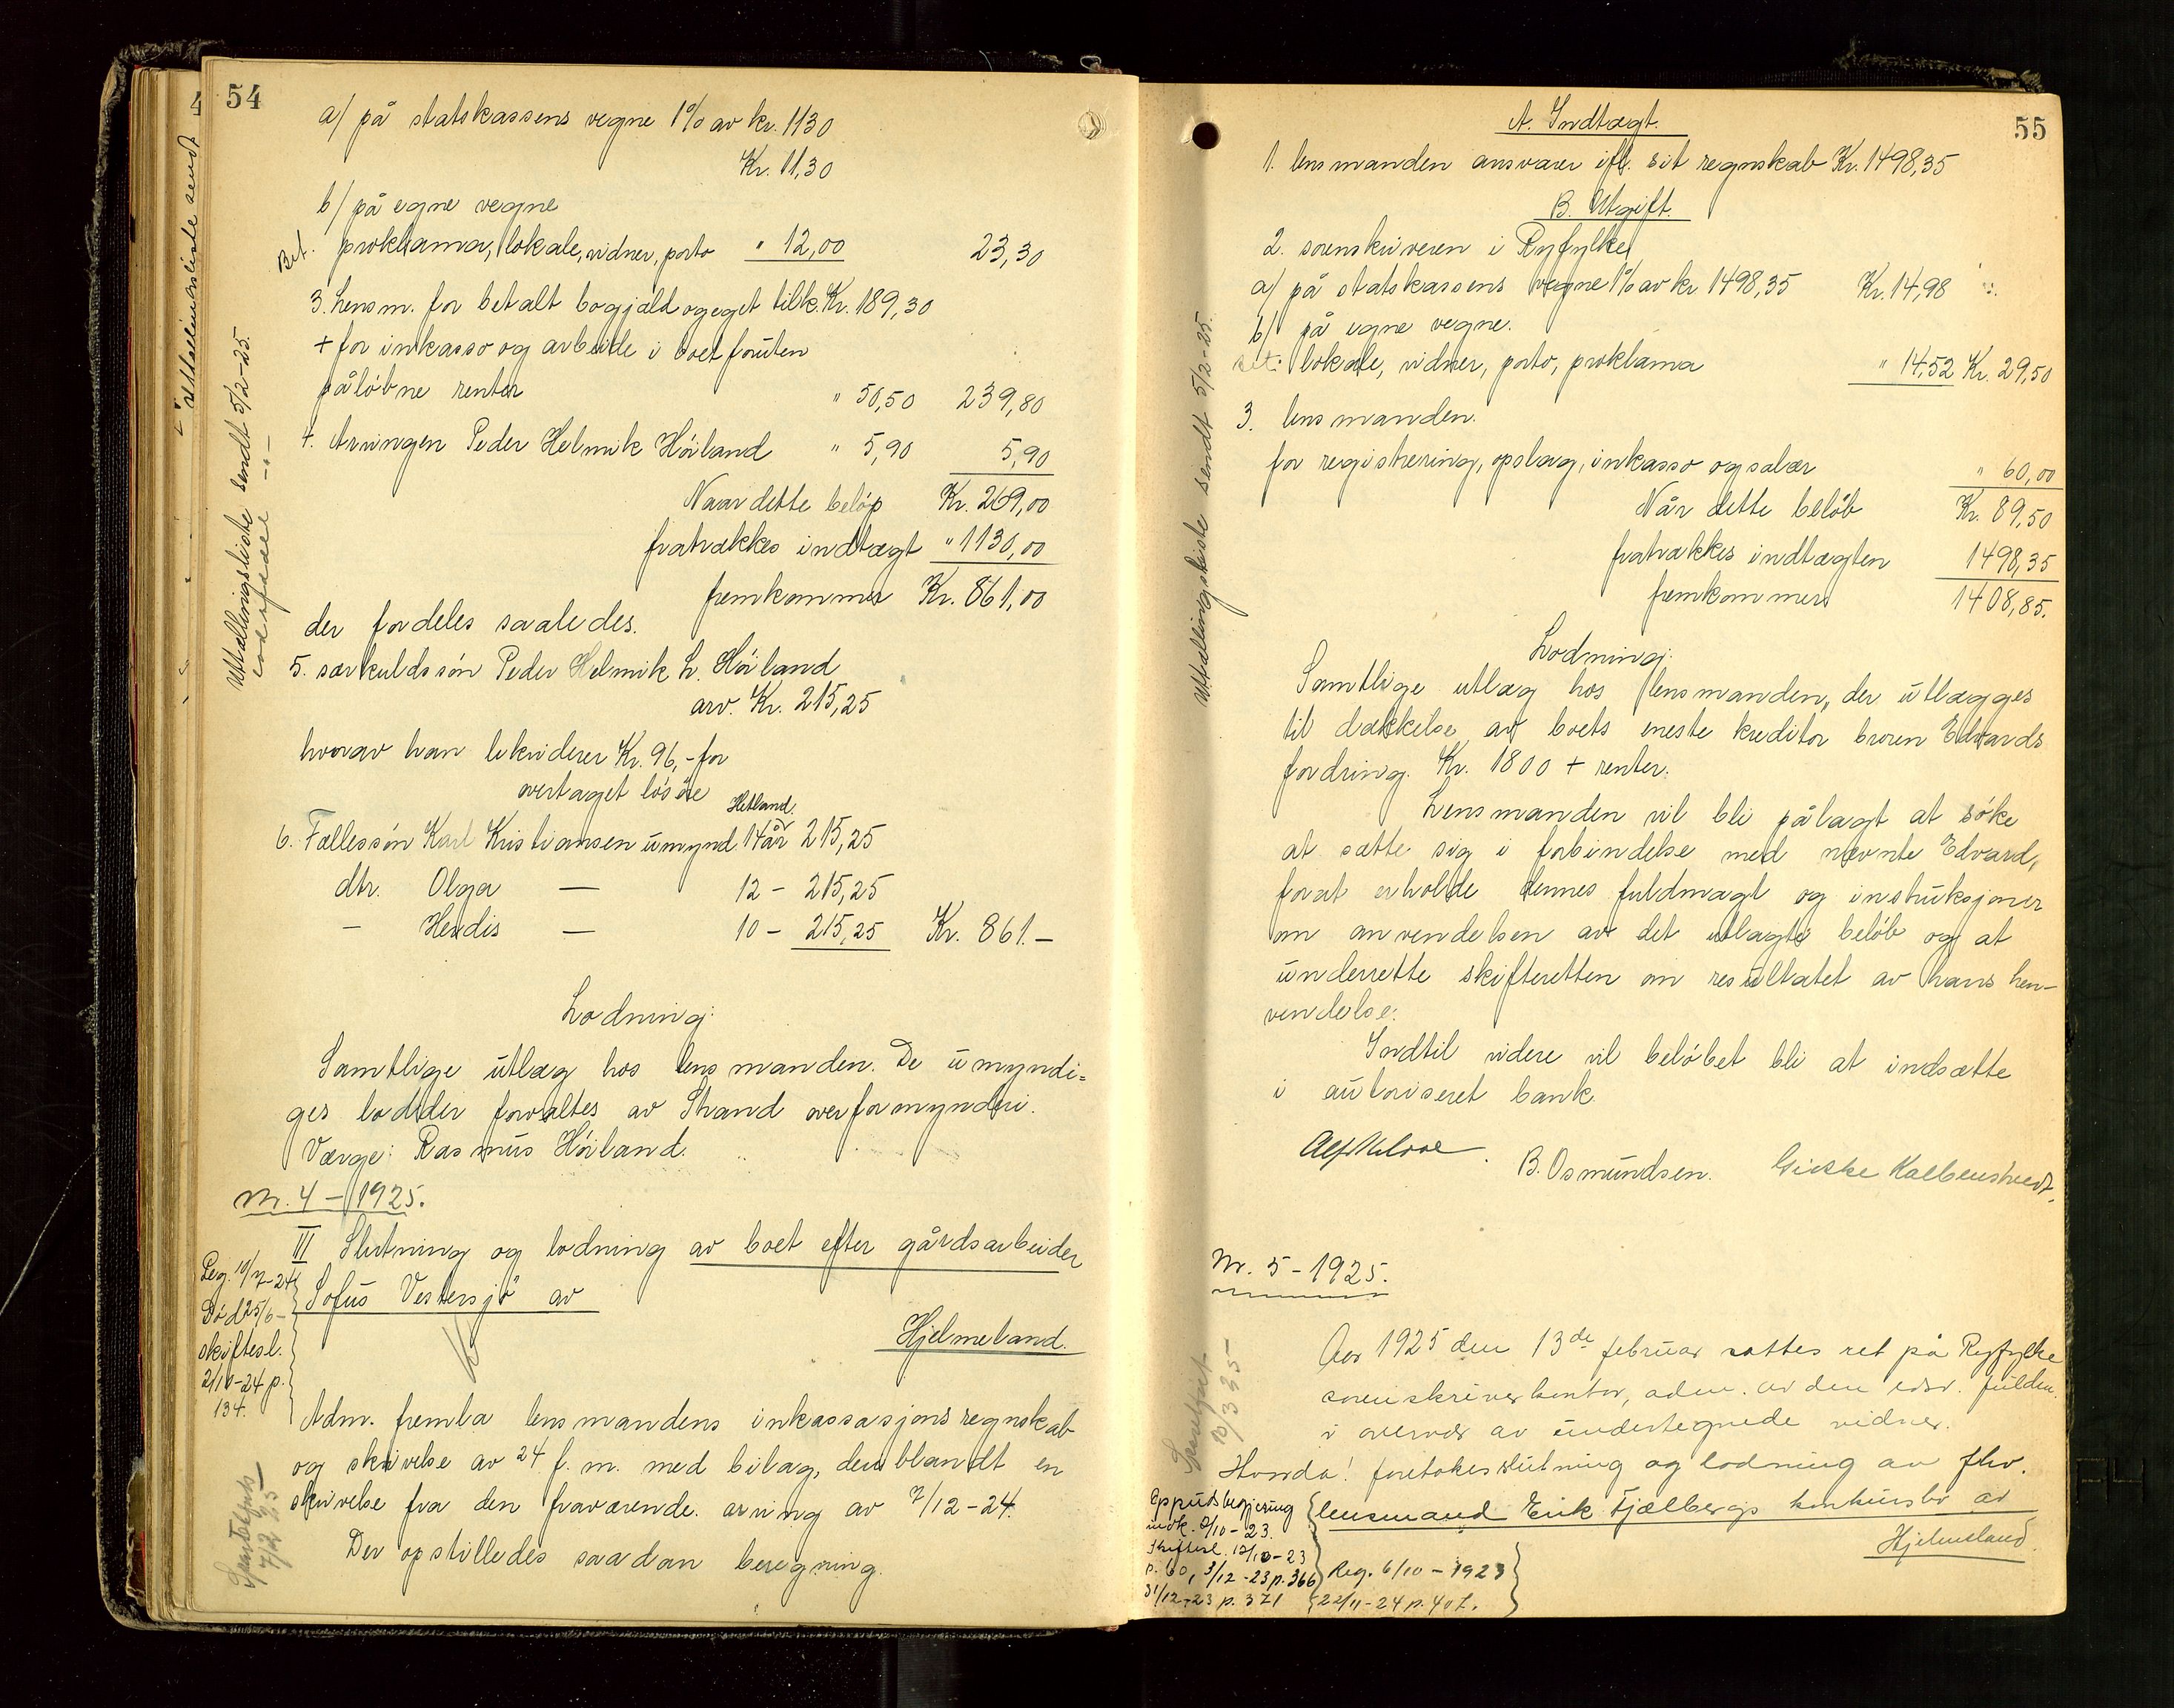 54
a/ på statskassens vegne 1% av kr. 1130
Kr. 11,30
b/ på egne vegne
Bet. proklama, lokale, vidner, porto " 12,00 23,30
3. Lensm. for betalt bogjæld og eget tilk. Kr. 189,30
+ for inkasso og arbeide i boet foruten
påløbne renter " 50,50 239,80
4. Arvingen Peder Helmik Høiland " 5,90 5,90
Naar dette beløp Kr. 269,00
fratrækkes indtægt " 1130,00
fremkommer Kr. 861,00
der fordeles saaledes.
5. særkuldssøn Peder Helmik L. Høiland
arv. Kr. 215,25
hvorav han likviderer Kr. 96,- for
overtaget løsøre
Hetland
6. Fællessøn Karl Kristiansen umynd 14 år 215,25
dtr. Olga — 12 - 215,25
- Herdis — 10 - 215,25 Kr. 861.-
Utbetalingsliste sendt 5/2-25.
Lodning:
Samtlige utlæg hos lensmanden. De umyndi=
ges lodder forvaltes av Strand overformynderi.
Værge: Rasmus Høiland.
Nr. 4 - 1925.
III Slutning og lodning av boet efter gårdsarbeider
Sofus Vestersjø av
Hjelmeland.
Reg. 10/7-24
Død 25/6-
skiftesl.
2/10-24 p.
134.
Adm. fremla lensmandens inkassasjonsregnskab
og skrivelse av 24 f. m. med bilag, deriblandt en
skrivelse fra den fraværende arving av 7/12-24.
Der opstilledes saadan beregning.
55
A. Indtægt.
1. lensmanden ansvarer ifl. sit regnskab Kr. 1498,35
B. Utgift.
2. sorenskriveren i Ryfylke
a/ på statskassens vegne 1% av kr 1498,35 Kr. 14,98
b/ på egne vegne.
bet: lokale, vidner, porto, proklama " 14,52 Kr. 29,50
3. lensmanden.
for registrering, opslag, inkasso og salær " 60,00
Når dette beløb Kr. 89,50
fratrækkes indtægten 1498,35
fremkommer 1408,85.
Utbetalingsliste sendt 5/2-25.
Lodning:
Samtlige utlæg hos lensmanden, der utlægges
til dækkelse av boets eneste kreditor broren Edvards
fordring. Kr. 1800 + renter.
Lensmanden vil bli pålagt at søke
at sætte sig i forbindelse med nævnte Edvard,
forat erholde dennes fuldmagt og instruksjoner
om anvendelsen av det utlagte beløb og at
underrette skifteretten om resultatet av hans hen-
vendelse.
Indtil videre vil beløbet bli at indsætte
i autoriseret bank.
B. Osmundsen.
Nr. 5 - 1925.
Aar 1925 den 13de februar sattes ret på Ryfylke
sorenskriverkontor, adm. av den edsv. fuldm.
i overvær av undertegnede vidner.
Hvorda! foretokes slutning og lodning av fhv.
lensmand Erik Fjælbergs konkursbo av
Hjelmeland.
Oppudsbegjering
indk. 6/10-23.
Skiftesl. 12/10-23
p. 60, 3/12-23 p. 366
31/12-23 p. 371
Reg. 6/10-1923
22/11-24 p. 407.